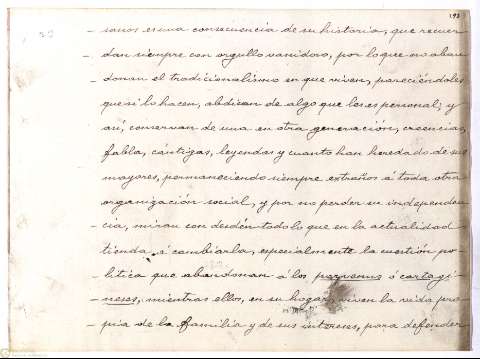 193
sanos es una consecuencia de su historia, que recuer-
dan siempre con orgullo vanidoso, por lo que no aban-
donan el tradicionalismo en que viven, pareciéndoles
que si lo hacen, abdican de algo que les es personal; y
así, conservan de una en otra generación, creencias,
fabla, cántigas, leyendas y cuanto han heredado de sus
mayores, permaneciendo siempre extraños á toda otra
organización social, y por no perder su independen-
cia, miran con desdén todo lo que en la actualidad
tienda á cambiarla, especialmente la cuestión po-
lítica que abandonan á los parvenus ó cartagi-
neses, mientras ellos, en su hogar, viven la vida pro-
pia de la familia y de sus intereses, para defender